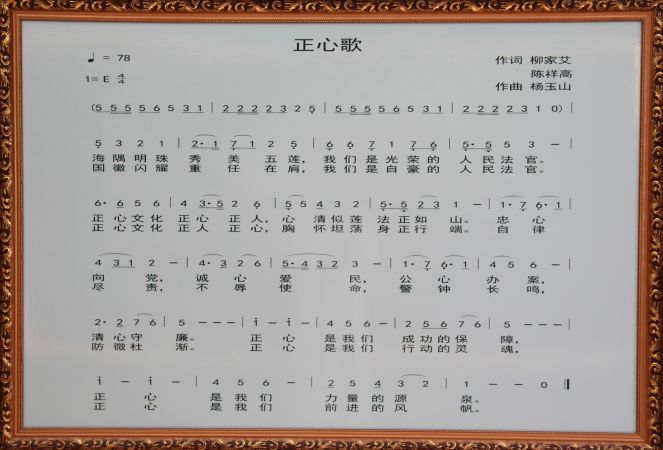 正心歌
♩ = 78
作词 柳家艾
1=E 4/4
陈祥高
作曲 杨玉山
(5 5 5 5 6 5 3 1 | 2 2 2 2 3 2 5 | 5 5 5 5 6 5 3 1 | 2 2 2 2 3 1 0)|
5 3 2 1 | 2·1 7 1 2 5 | 6 6 7 1 7 6 | 5·5 5 3 - |
海隅明珠 秀美五莲，我们是光荣的 人民法官。
国徽闪耀 重任在肩，我们是自豪的 人民法官。
6·6 5 6 | 4 3·5 2 6 | 5 5 4 3 2 | 5·5 2 2 3 1 - | 1·7 6·1 |
正心文化 正心正人，心清似莲 法正如山。忠心
正心文化 正人正心，胸怀坦荡 身正行端。自律
4 3 1 2 - | 4·3 2 6 | 5·4 3 2 3 - | 1·7 6·1 | 4 5 6 - |
向党，诚心爱民，公心办案，
尽责，不辱使命，警钟长鸣，
2·2 7 6 | 5 - - - | i - i - | 4 5 6 - | 2 5 6 7 6 | 5 - - - |
清心守廉。正心是我们 成功的保障，
防微杜渐。正心是我们 行动的灵魂，
i - i - | 4 5 6 - | 2 5 4 3 2 | 1 - - 0 ‖
正心是我们 力量的源泉。
正心是我们 前进的风帆。